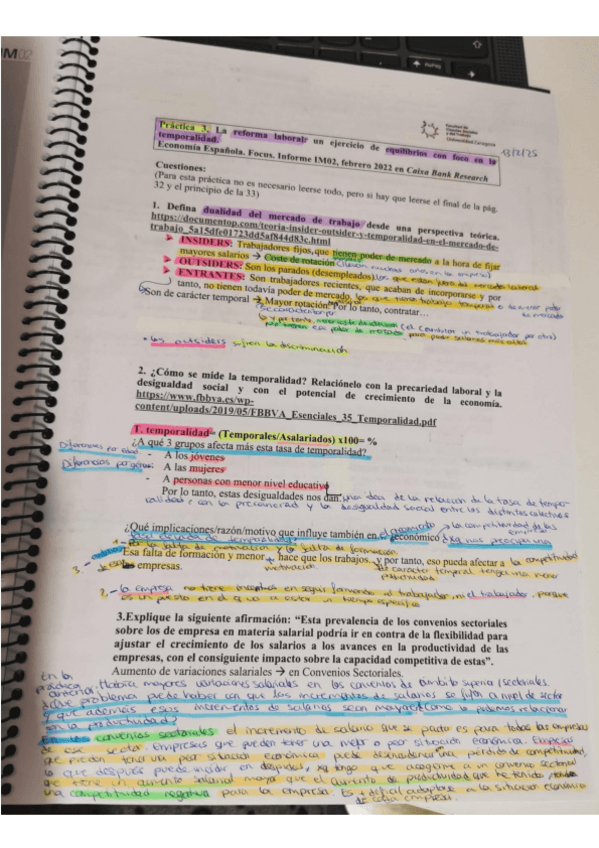 IM02
Facultad de
Ciencias Sociales
y del Trabajo
Universidad Zaragoza
13/2/25
Práctica 3. La reforma laboral: un ejercicio de equilibrios con foco en la
temporalidad.
Economía Española. Focus. Informe IM02, febrero 2022 en Caixa Bank Research
Cuestiones:
(Para esta práctica no es necesario leerse todo, pero si hay que leerse el final de la pág.
32 y el principio de la 33)
1. Defina dualidad del mercado de trabajo desde una perspectiva teórica.
https://documentop.com/teoria-insider-outsider-y-temporalidad-en-el-mercado-de-
trabajo_5a15dfe01723dd5af844d83c.html
INSIDERS: Trabajadores fijos, que tienen poder de mercado a la hora de fijar
mayores salarios → Coste de rotación
OUTSIDERS: Son los parados (desempleados)
ENTRANTES: Son trabajadores recientes, que acaban de incorporarse y por
tanto, no tienen todavía poder de mercado.
Son de carácter temporal → Mayor rotación. Por lo tanto, contratar…
• Los outsiders sufren la discriminación
2. ¿Cómo se mide la temporalidad? Relaciónelo con la precariedad laboral y la
desigualdad social y con el potencial de crecimiento de la economía.
https://www.fbbva.es/wp-
content/uploads/2019/05/FBBVA_Esenciales_35_Temporalidad.pdf
1. temporalidad= (Temporales/Asalariados) x100= %
¿A qué 3 grupos afecta más esta tasa de temporalidad?
Diferencias por género:
- A los jóvenes
- A las mujeres
- A personas con menor nivel educativo
Por lo tanto, estas desigualdades nos dan una idea de la relación de la tasa de tempo-
ralidad, con la precariedad y la desigualdad social entre los distintos colectivos
¿Qué implicaciones/razón/motivo que influye también en el económico
la competitividad de las
Esa falta de formación y menor hace que los trabajos y por tanto, eso pueda afectar a la competitividad
motivación de carácter temporal tenga una menor
las empresas. productividad
2.- la empresa no tiene incentivos en seguir formando al trabajador, ni el trabajador, porque
es un puesto en el que va a estar un tiempo específico
3.Explique la siguiente afirmación: “Esta prevalencia de los convenios sectoriales
sobre los de empresa en materia salarial podría ir en contra de la flexibilidad para
ajustar el crecimiento de los salarios a los avances en la productividad de las
empresas, con el consiguiente impacto sobre la capacidad competitiva de estas”.
Aumento de variaciones salariales → en Convenios Sectoriales.
En la
práctica
anterior: Había mayores variaciones salariales en los convenios de ámbito superior/sectoriales.
¿Qué problema puede haber con que los incrementos de salarios se fijen a nivel de sector
y que además esos incrementos de salarios sean mayores? ¿Cómo lo podemos relacionar
con la productividad?
En los convenios sectoriales el incremento de salario que se pacta es para todas las empresas
de ese sector. Empresas que pueden tener una mejor o peor situación económica. Empresas
que pueden tener una peor situación económica puede desencadenar una pérdida de competitividad,
lo que después puede incidir en despidos, xq tengo que acogerme a un convenio sectorial
que tiene un aumento salarial mayor que el aumento de productividad que he tenido
una competitividad negativa para la empresa. Es + difícil adaptarse a la situación económica
de cada empresa.